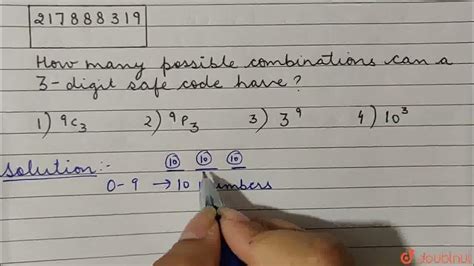 217888319
How many possible combinations can a
3-digit safe code have?
1) ⁹C₃ 2) ⁹P₃ 3) 3⁹ 4) 10³
Solution:- 10 10 10
0-9 → 10 numbers
doubtnut